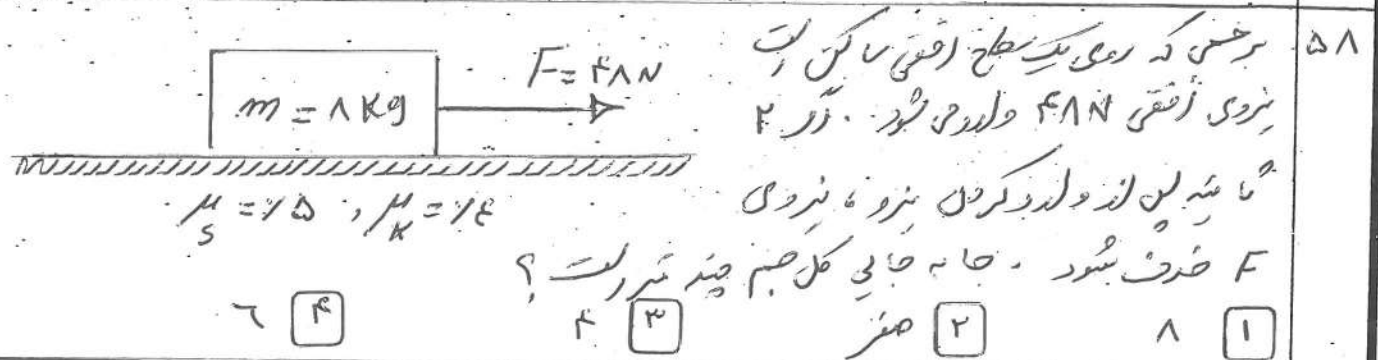 ۵۸ بر جسمی که روی یک سطح افقی ساکن است
نیروی افقی ۴۸N وارد می شود . اگر ۲
ثانیه پس از وارد کردن نیرو ، نیروی
F حذف شود . جا به جایی کل جسم چند متر است ؟
F = ۴۸N
m = ۸ kg
μs = ٪۵ , μk = ٪۴
۱ ۸ ۲ صفر ۳ ۴ ۴ ٦